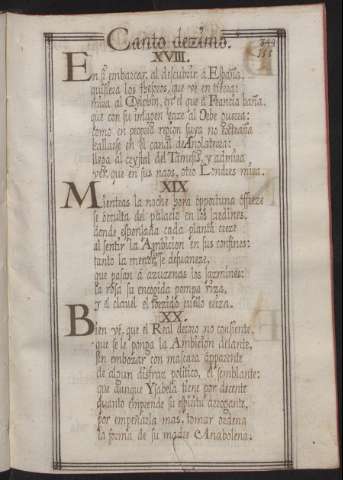 Canto dezimo.
XVIII.
En su embarcar, al descubrir a España,
quisiera los thesoros, que vè en tierra:
mira al Occeano, en el que a Francia baña,
que con su imagen haze al Orbe guerra:
como en propria region suya no estraña
hallarse en el canal de Inglaterra:
llega al crystal del Tamesis, y admira
ver, que en sus naos, otro Londres mira.
XIX
Mientras la noche hora opportuna offreze
se occulta del palacio en los jardines,
donde esponjada cada planta creze
al sentir la Ambicion en sus confines:
tanto la mente se desvaneze,
que pasan a azuzenas los jazmines:
la rosa su encogida pompa riza,
y al clavel el torzido cuello eriza.
XX.
Bien vé, que el Real decoro no consiente,
que se le ponga la Ambicion delante,
sin embozar con mascara apparente
de algun disfraz politico, el semblante:
que aunque Ysabella tiene por decente
quanto emprende su espiritu arrogante,
por empeñarla mas, tomar ordena
la forma de su madre Anabolena.